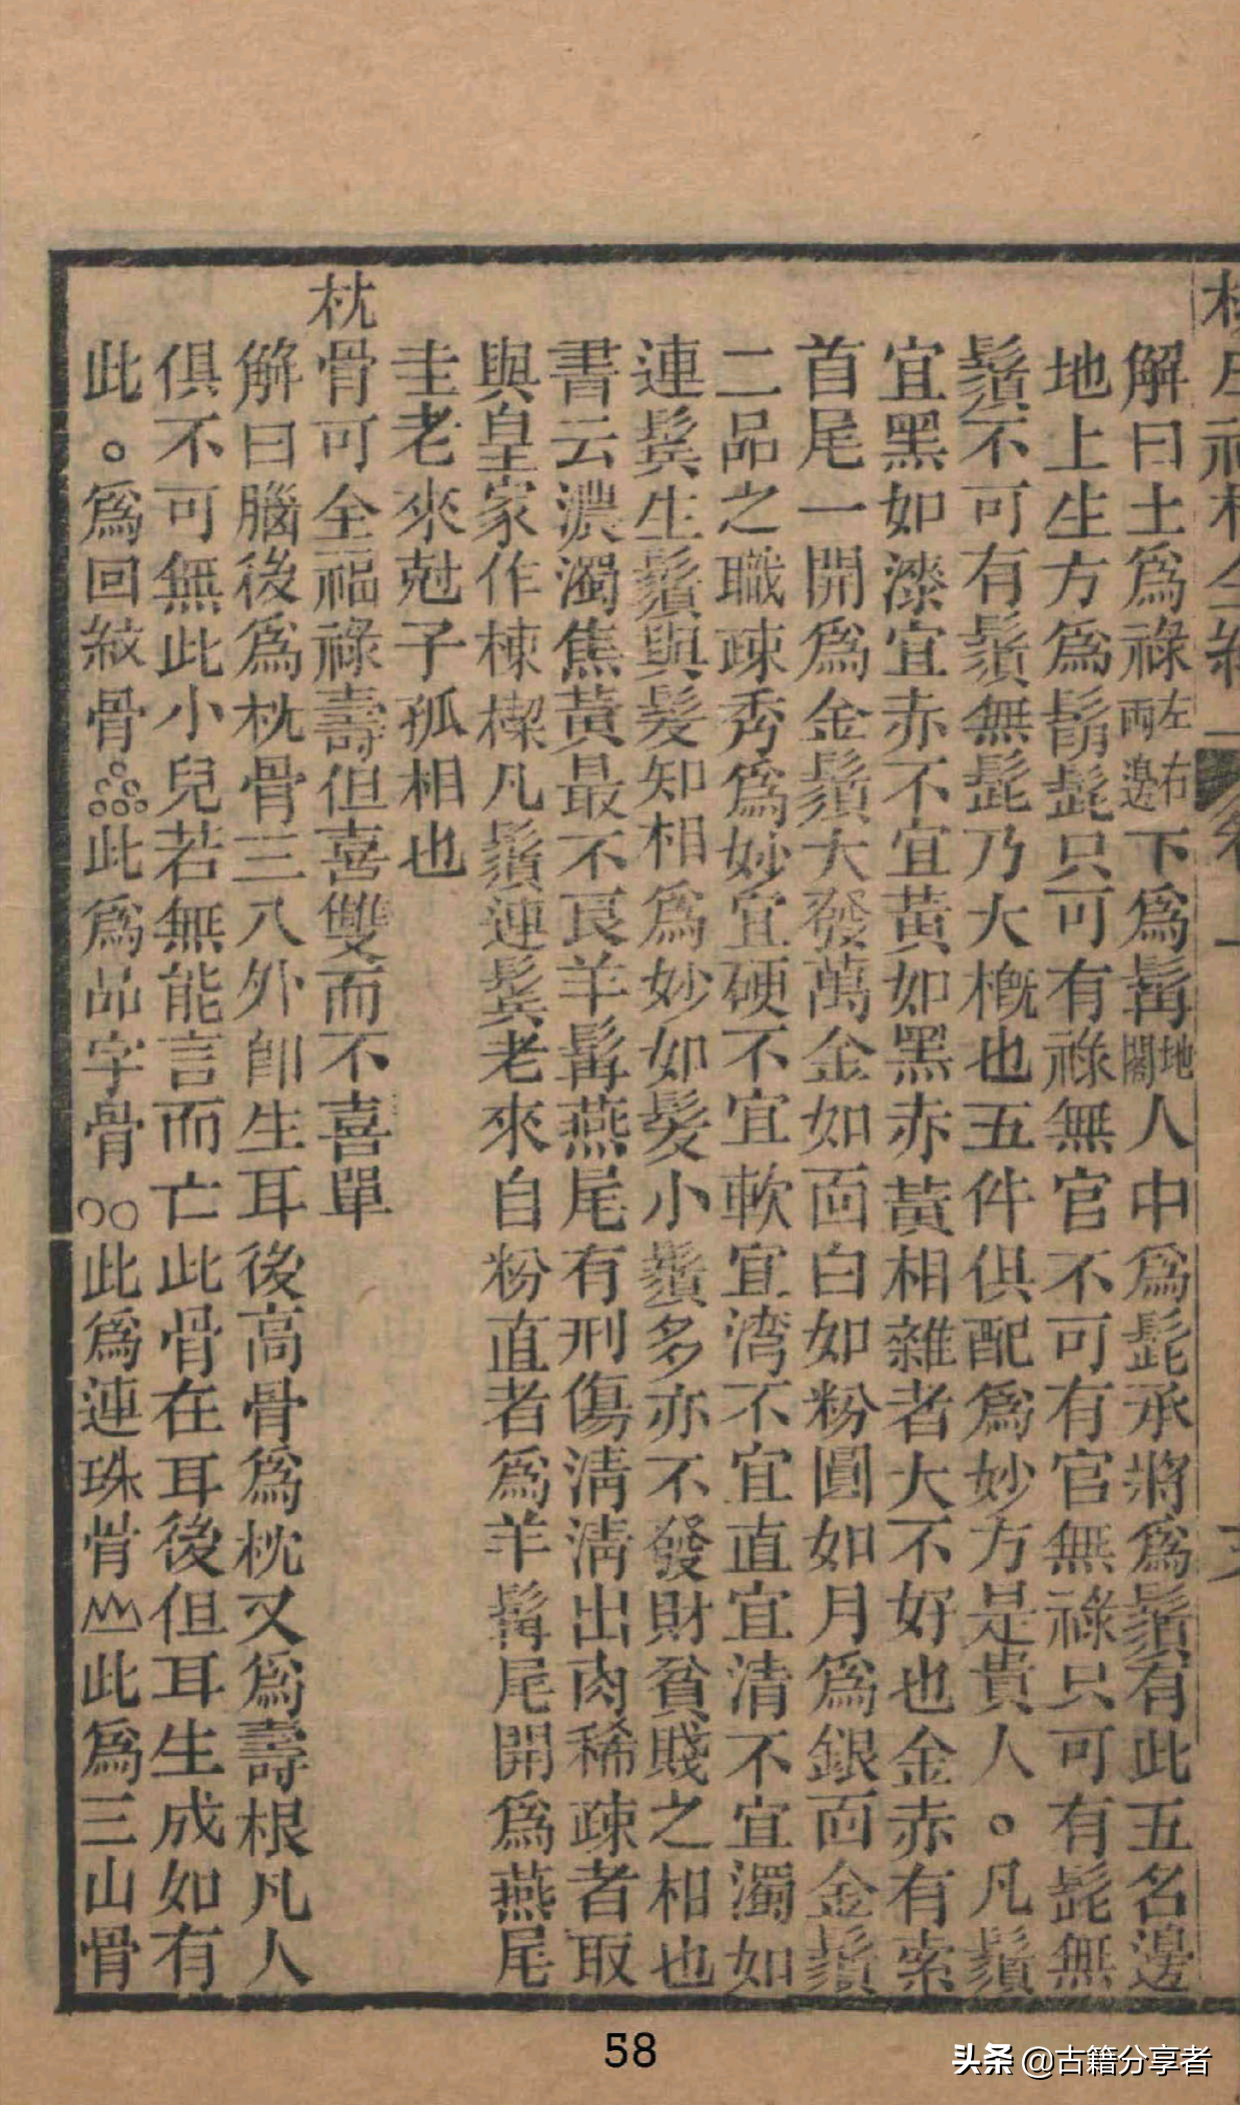 解曰土爲祿左右兩邊下爲髯地閣人中爲髭承將爲鬚有此五名邊
地上生方爲鬍髭只可有祿無官不可有官無祿只可有髭無
鬚不可有鬚無髭乃大概也五件俱配爲妙方是貴人。凡鬚
宜黑如漆宜赤不宜黃如黑赤黃相雜者大不好也金赤有索
首尾一開爲金鬚大發萬金如面白如粉圓如月爲銀面金鬚
二品之職疎秀爲妙宜硬不宜軟宜湾不宜直宜清不宜濁如
連鬓生鬚與髮知相爲妙如髮小鬚多亦不發財貧賤之相也
書云濃濁焦黃最不良羊髯燕尾有刑傷清清出肉稀疎者取
與皇家作棟樑凡鬚連鬓老來自粉直者爲羊髯尾開爲燕尾
圭老來尅子孤相也
枕骨可全福祿壽但喜雙而不喜單
解曰腦後爲枕骨三八外卽生耳後高骨爲枕又爲壽根凡人
俱不可無此小兒若無能言而亡此骨在耳後但耳生成如有
此。爲回紋骨此爲品字骨○○此爲連珠骨此爲三山骨
58
头条 @古籍分享者